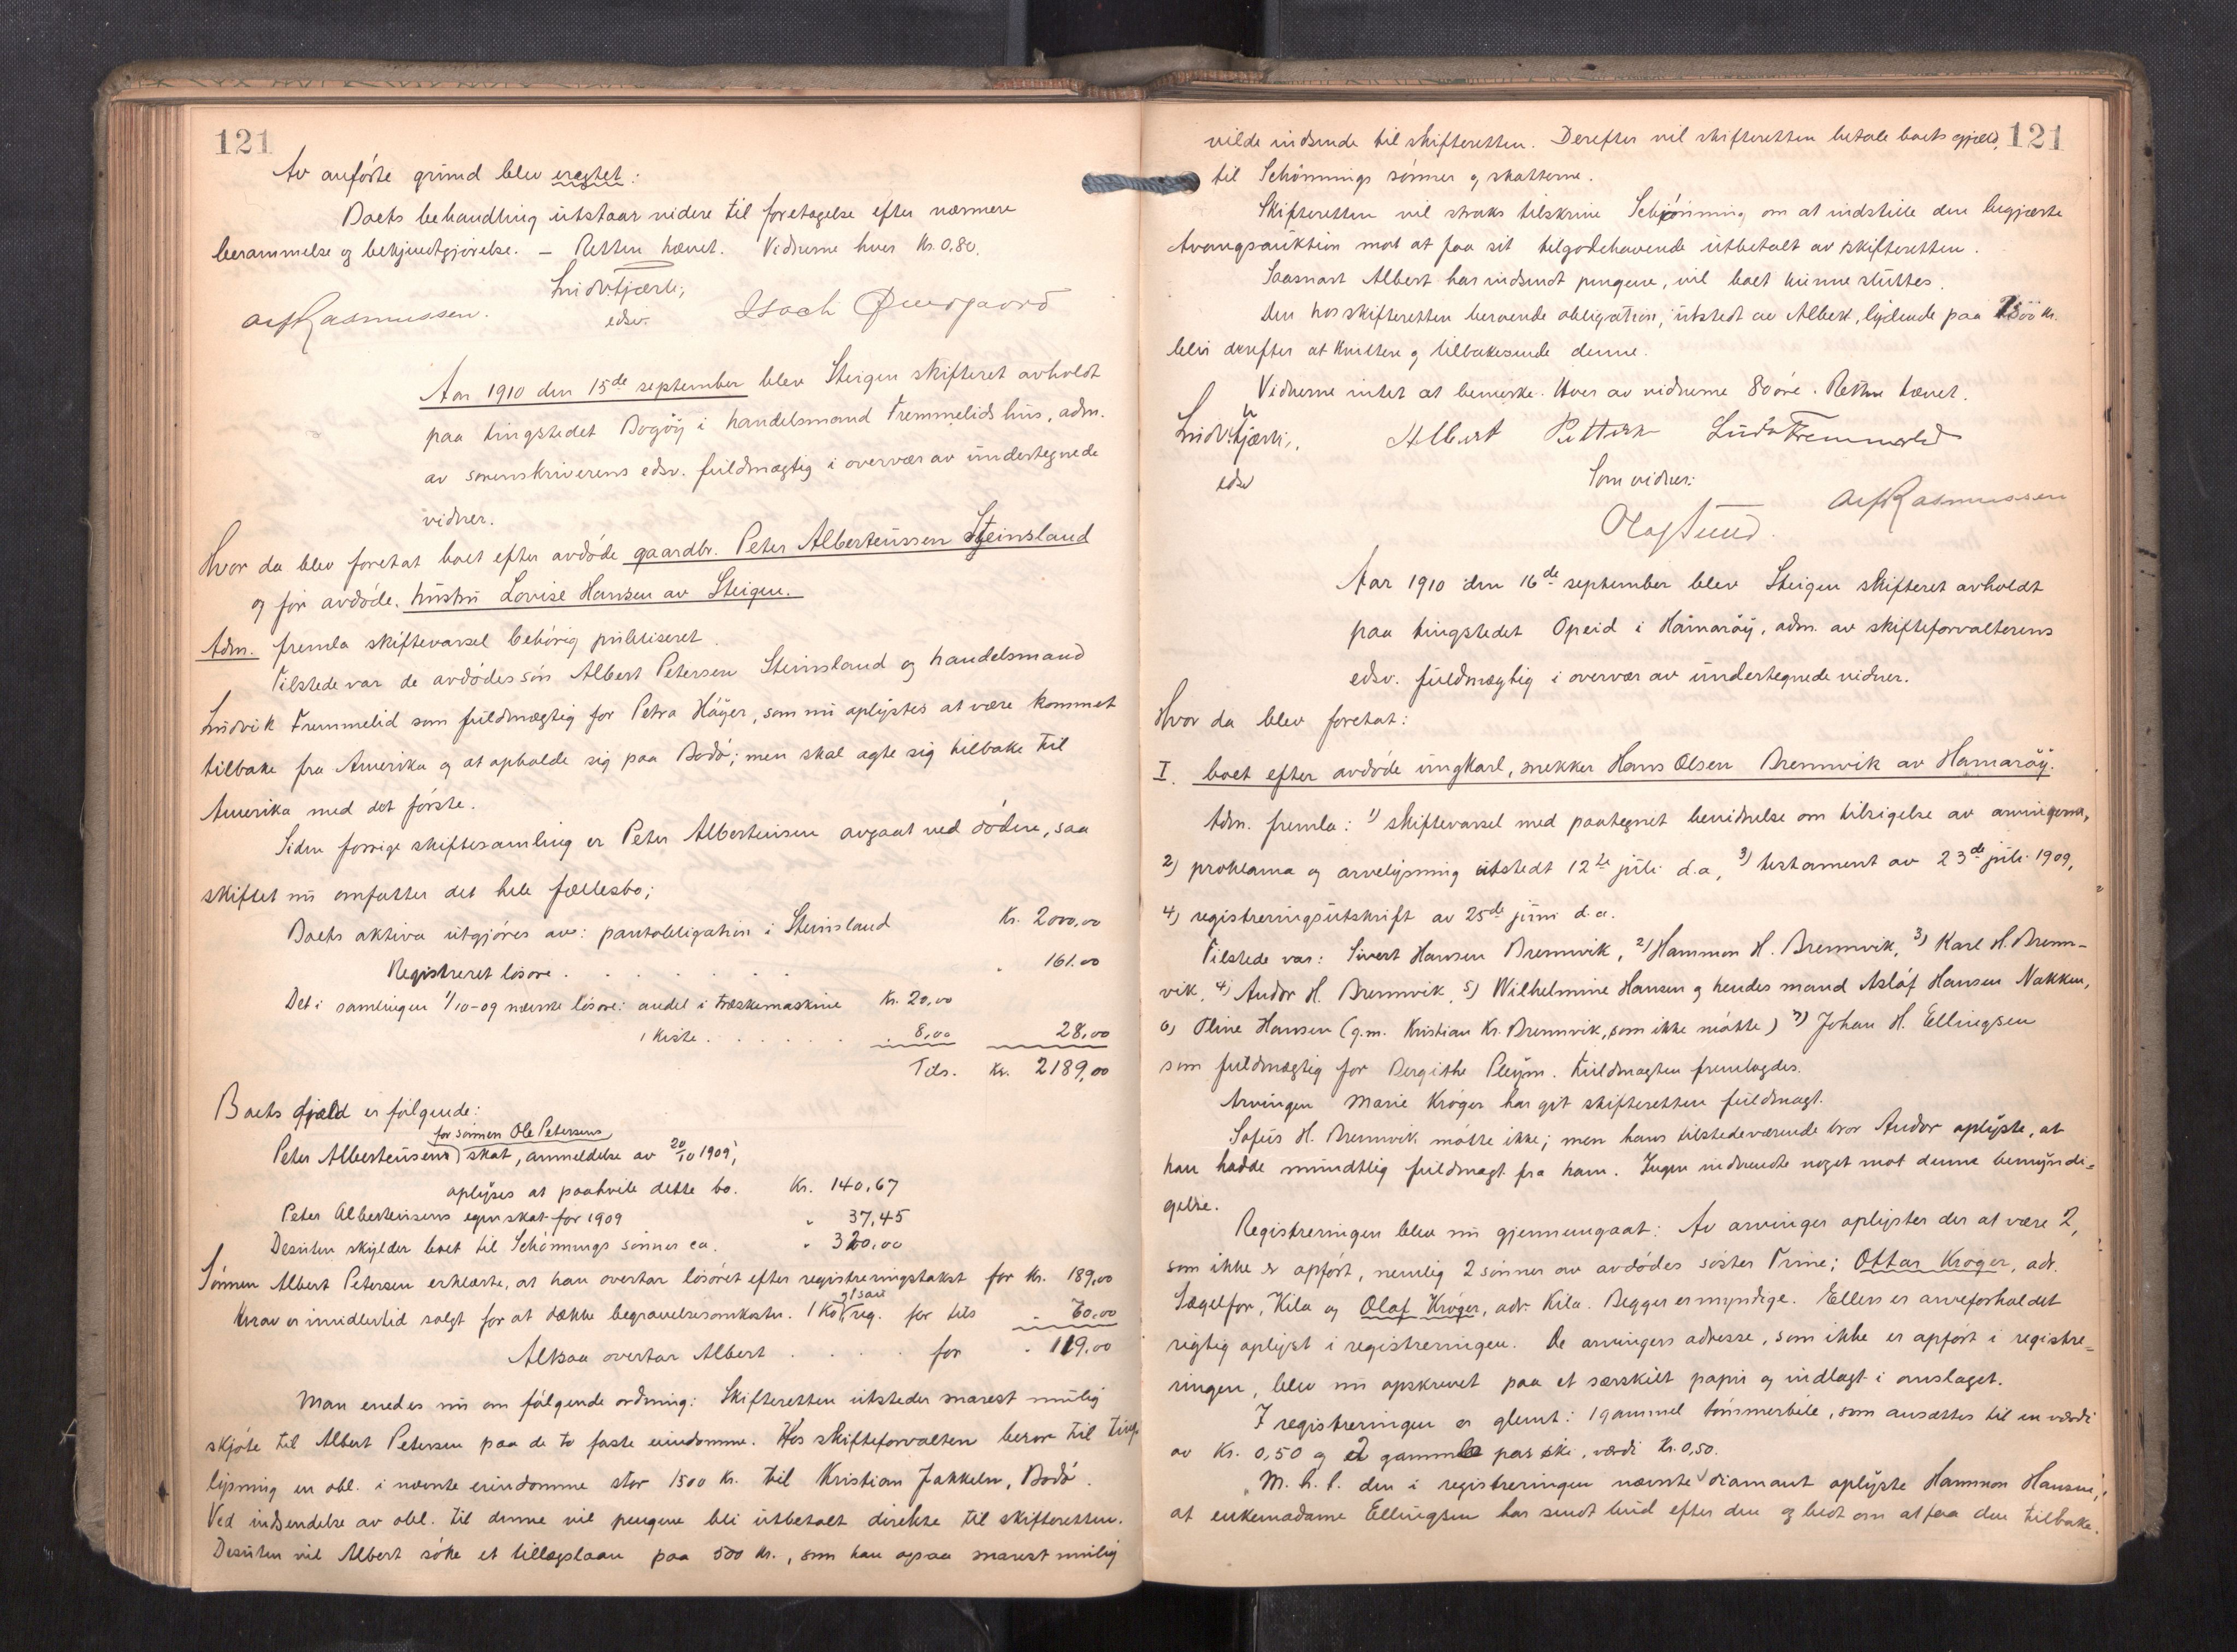 121
Av anførte grund blev eragtet:
Boets behandling utstaar videre til foretagelse efter nærmere
berammelse og bekjendtgjørelse. — Retten hævet. Vidnerne hver Kr. 0.80.
edsv.
Alf Rasmussen.
Aar 1910 den 15de september blev Steigen skifteret avholdt
paa tingstedet Bogøy i handelsmand Fremmelids hus, adm.
av sorenskriverens edsv. fuldmægtig i overvær av undertegnede
vidner.
Hvor da blev foretat boet efter avdøde gaardbr. Peter Alberteussen Steinsland
og før avdøde hustru Lovise Hansen av Steigen.
Adm. fremla skiftevarsel behørig publiseret.
Tilstede var de avdødes søn Albert Petersen Steinsland og handelsmand
Ludvik Fremmelid som fuldmægtig for Petra Høyer, som nu oplystes at være kommet
tilbake fra Amerika og at opholde sig paa Bodø; men skal agte sig tilbake til
Amerika med det første.
Siden forrige skiftesamling er Peter Alberteussen avgaat ved døden, saa
skiftet nu omfatter det hele fællesbo;
Boets aktiva utgjøres av: pantobligation i Steinsland Kr. 2000,00
Registreret løsøre . . . . . . " 161.00
Det i samlingen 1/10-09 nævnte løsøre: andel i træskemaskine Kr. 20,00
1 kiste . . . . . . 8,00 28,00
Tils. Kr. 2189,00
Boets gjæld er følgende:
for sønnen Ole Petersens
Peter Alberteusens skat, anmeldelse av 20/10 1909,
oplyses at paahvile dette bo. Kr. 140,67
Peter Alberteusens egen skat for 1909 " 37,45
Desuten skylder boet til Schönnings sønner ca. " 320,00
Sønnen Albert Petersen erklærte, at han overtar løsøret efter registreringstakst for Kr. 189,00
g 1 sau
Herav er imidlertid solgt for at dække begravelsesomkostn. 1 ko reg. for tils " 70,00
Altsaa overtar Albert . . . . for " 119,00
Man enedes nu om følgende ordning: Skifteretten utsteder snarest mulig
skjøte til Albert Petersen paa de to faste eiendomme. Hos skifteforvalteren beror til ting-
lysning en obl. i nævnte eiendomme stor 1500 Kr. til Kristian Jakkeln, Bodø.
Ved indsendelse av obl. til denne vil pengene bli utbetalt direkte til skifteretten.
Desuten vil Albert søke et tillægslaan paa 500 kr., som han ogsaa snarest mulig
121
vilde indsende til skifteretten. Derefter vil skifteretten betale boets gjæld
til Schönnings sønner og skatterne.
Skifteretten vil straks tilskrive Schjönning om at indstille den begjærte
tvangsauktion mot at faa sit tilgodehavende utbetalt av skifteretten.
Saasnart Albert har indsendt pengene, vil boet kunne sluttes.
Den hos skifteretten beroende obligation, utstedt av Albert, lydende paa 1500 kr.
blir derefter at kvittere og tilbakesende denne.
Vidnerne intet at bemerke. Hver av vidnerne 80 øre. Retten hævet.
edsv
Albert Pettersen Ludv Fremmelid
Som vidner:
Olaf Sund. Alf Rasmussen
Aar 1910 den 16de september blev Steigen skifteret avholdt
paa tingstedet Opeid i Hamarøy, adm. av skifteforvalterens
edsv. fuldmægtig i overvær av undertegnede vidner.
Hvor da blev foretat:
I. boet efter avdøde ungkarl, snekker Hans Olsen Brennvik av Hamarøy.
Adm. fremla: 1) skiftevarsel med paategnet bevidnelse om tilsigelse av arvingerne,
2) proklama og arvelysning utstedt 12te juli d.a, 3) testament av 23de juli 1909,
4) registreringsutskrift av 25de juni d.a.
Tilstede var: Sivert Hansen Brennvik, 2) Hammon H. Brennvik, 3) Karl H. Brenn-
vik, 4) Andor H. Brennvik, 5) Wilhelmine Hansen og hendes mand Asløf Hansen Nakken,
6) Oline Hansen (g.m. Kristian Kr. Brennvik, som ikke møtte) 7) Johan H. Ellingsen
som fuldmægtig for Bergithe Pleym. Fuldmagten fremlagdes.
Arvingen Marie Krøger har git skifteretten fuldmagt.
Sofus H. Brennvik møtte ikke; men hans tilstedeværende bror Andor oplyste, at
han hadde mundtlig fuldmagt fra ham. Ingen indvendte noget mot denne bemyndi-
gelse.
Registreringen blev nu gjennemgaat: Av arvinger oplystes der at være 2,
som ikke er opført, nemlig 2 sønner av avdødes søster Trine; Ottar Krøger, adr.
Sægelfor, Kila og Olaf Krøger, adr. Kila. Begge er myndige. Ellers er arveforholdet
rigtig oplyst i registreringen. De arvingers adresse, som ikke er opført i registre-
ringen, blev nu opskrevet paa et særskilt papir og indlagt i omslaget.
I registreringen er glemt: 1 gammel tømmerbile, som ansættes til en værdi
av Kr. 0,50 og 2 gamle par ski, værdi Kr. 0,50.
M. h. t. den i registreringen nævnte diamant oplyste Hammon Hansen,
at enkemadame Ellingsen har sendt bud efter den og bedt om at faa den tilbake.